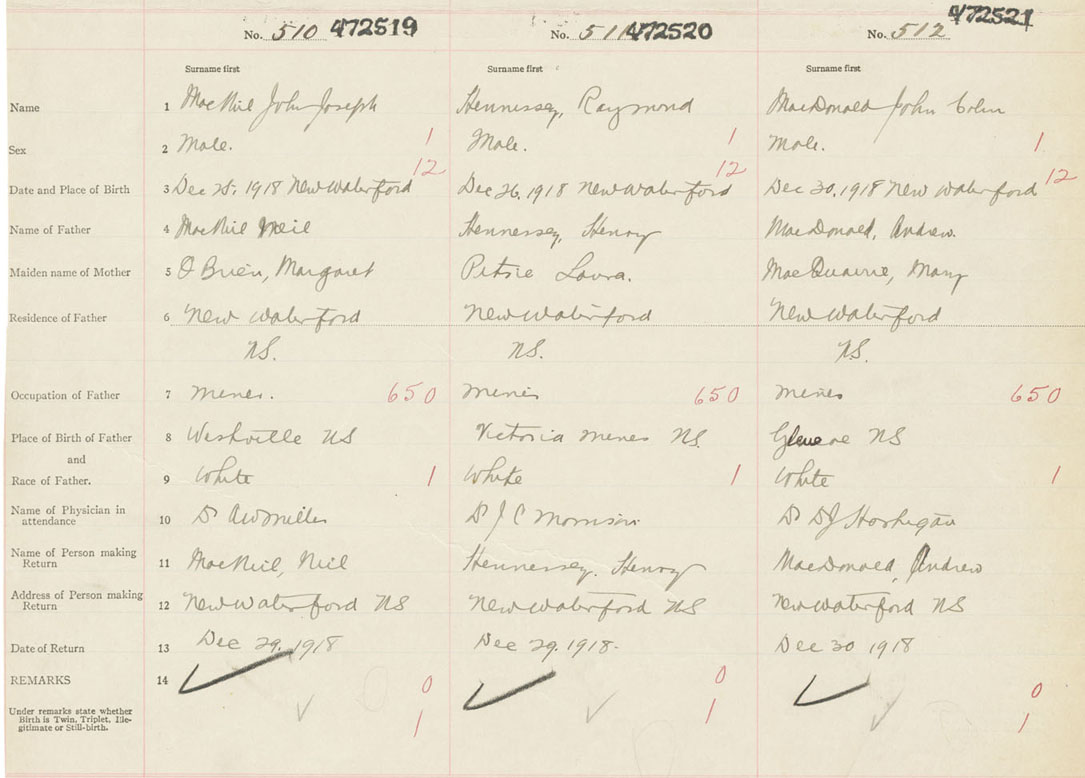 No. 510 472519 No. 511 472520 No. 512 472521
Surname first Surname first Surname first
Name 1 MacNeil John Joseph Hennessey, Raymond MacDonald John Colin
Sex 2 Male. 1 Male. 1 Male. 1
12 12 12
Date and Place of Birth 3 Dec 25. 1918 New Waterford Dec 26. 1918 New Waterford Dec 30. 1918 New Waterford
Name of Father 4 MacNeil Neil Hennessey, Henry MacDonald, Andrew.
Maiden name of Mother 5 O Brien, Margaret Petrie Laura. MacQuarrie, Mary
Residence of Father 6 New Waterford New Waterford New Waterford
NS. NS. NS.
Occupation of Father 7 Miner. 650 Miner 650 Miner 650
Place of Birth of Father 8 Westville NS Victoria Mines NS. Glencoe NS
and
Race of Father. 9 White 1 White 1 White 1
Name of Physician in
attendance 10 Dr AW Miller Dr J C Morrison Dr DJ
Name of Person making
Return 11 MacNeil, Neil Hennessey, Henry MacDonald, Andrew
Address of Person making
Return 12 New Waterford NS New Waterford NS New Waterford NS
Date of Return 13 Dec 29. 1918 Dec 29. 1918. Dec 30 1918
REMARKS 14 0 0 0
Under remarks state whether
Birth is Twin, Triplet, Ille-
gitimate or Still-birth. 1 1 1